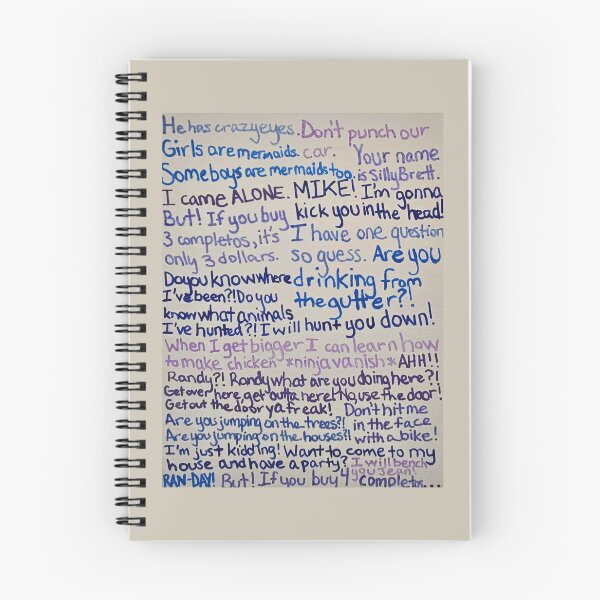 He has crazy eyes. Don't punch our
Girls are mermaids. car. Your name
Some boys are mermaids too. is Silly Brett.
I came ALONE. MIKE! I'm gonna
But! If you buy kick you in the head!
3 completos, it's I have one question
only 3 dollars. so guess. Are you
Do you know where drinking from
I've been?! Do you the gutter?!
know what animals
I've hunted?! I will hunt you down!
When I get bigger I can learn how
to make chicken *ninja vanish* AHH!!
Randy?! Randy what are you doing here?!
Get over here get outta here! No, use the door!
Get out the door ya freak! Don't hit me
Are you jumping on the trees?! in the face
Are you jumping on the houses?! with a bike!
I'm just kidding! Want to come to my
house and have a party? I will bench
you Jean!
RAN-DAY! But! If you buy 4 completos...